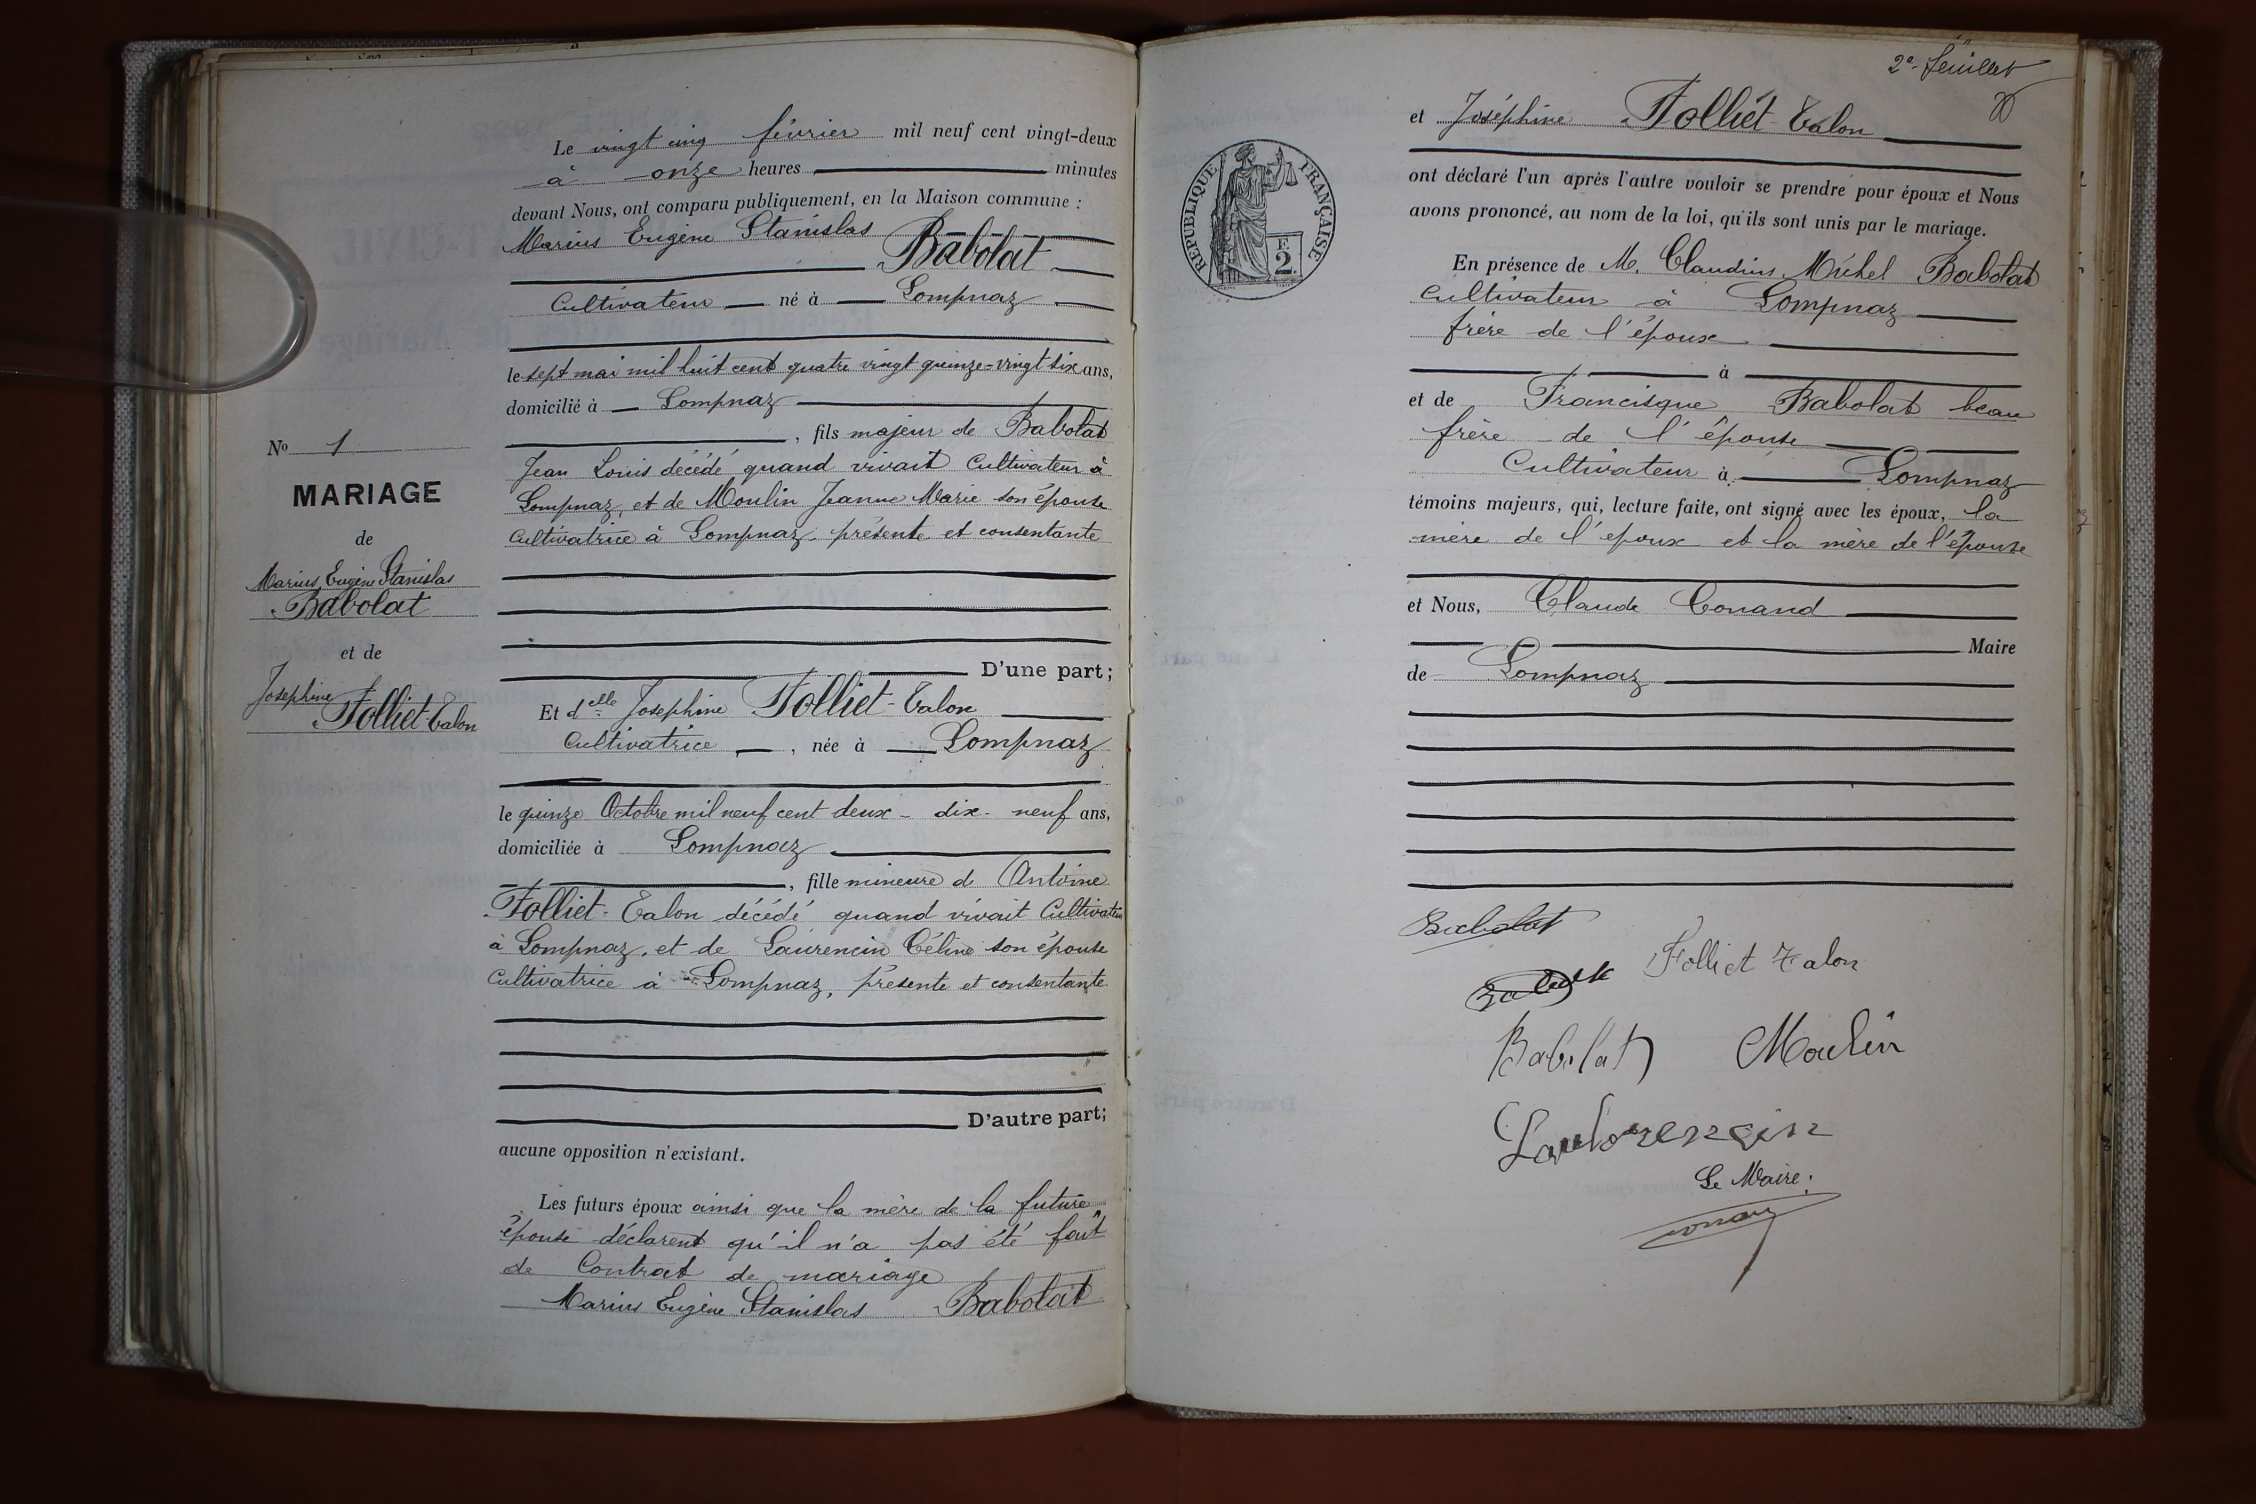 Le vingt cinq février mil neuf cent vingt-deux
à onze heures minutes
devant Nous, ont comparu publiquement, en la Maison commune :
Marius Eugène Stanislas
Babolat
Cultivateur né à Lompnaz
le sept mai mil huit cent quatre vingt quinze - vingt six ans,
domicilié à Lompnaz
, fils majeur de Babolat
Jean Louis décédé quand vivait Cultivateur à
Lompnaz, et de Moulin Jeanne Marie son épouse
Cultivatrice à Lompnaz présente et consentante
D'une part;
Et delle Josephine Folliet-Talon
Cultivatrice, née à Lompnaz
le quinze Octobre mil neuf cent deux - dix-neuf ans,
domiciliée à Lompnaz
, fille mineure de Antoine
Folliet-Talon décédé quand vivait Cultivateur
à Lompnaz, et de Laurencin Céline son épouse
Cultivatrice à Lompnaz, présente et consentante
D'autre part;
aucune opposition n'existant.
Les futurs époux ainsi que la mère de la future
épouse déclarent qu'il n'a pas été fait
de Contrat de mariage
Marius Eugène Stanislas Babolat
No 1
MARIAGE
de
Marius Eugène Stanislas
Babolat
et de
Josephine
Folliet-Talon
2e feuillet
et Joséphine Folliet Talon
REPUBLIQUE FRANÇAISE
F.
2.
ont déclaré l'un après l'autre vouloir se prendre pour époux et Nous
avons prononcé, au nom de la loi, qu'ils sont unis par le mariage.
En présence de M. Claudius Michel Babolat
Cultivateur à Lompnaz
frère de l'époux
à
et de Francisque Babolat beau
frère de l'épouse
Cultivateur à Lompnaz
témoins majeurs, qui, lecture faite, ont signé avec les époux, la
mère de l'époux et la mère de l'épouse
et Nous, Claude Conand
Maire
de Lompnaz
Babolat
Folliet Talon
Babolat Moulin
Le Maire:
Conand